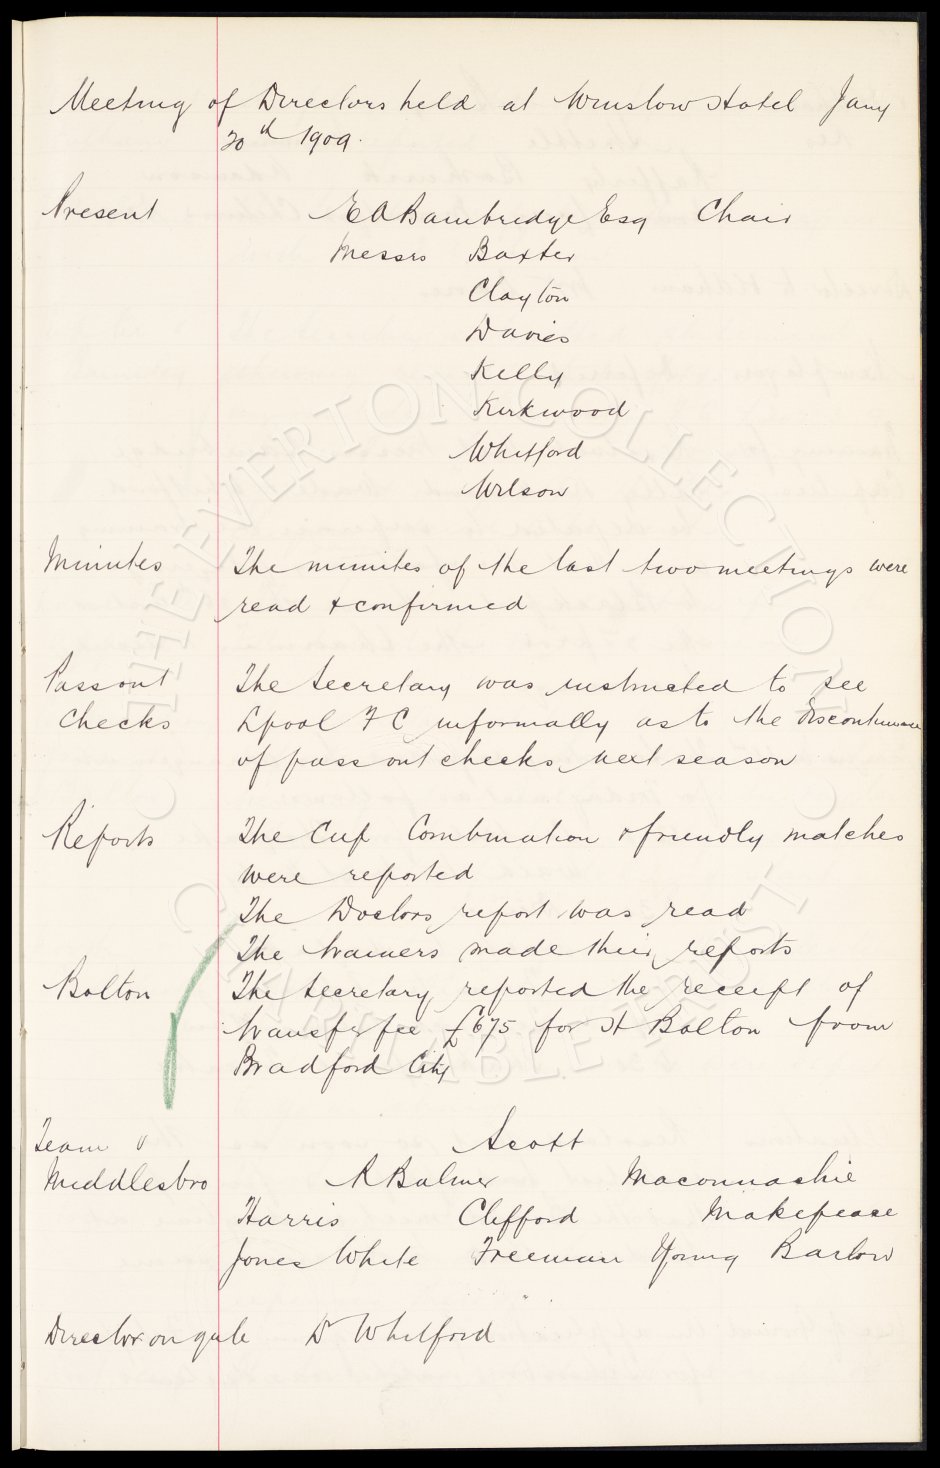 Meeting of Directors held at Winslow Hotel Jany
20th 1909.
Present E A Bainbridge Esq Chair
Messrs Baxter
Clayton
Davies
Kelly
Kirkwood
Whitford
Wilson
Minutes The minutes of the last two meetings were
read & confirmed
Pass out The Secretary was instructed to see
Checks Lpool F C informally as to the discontinuance
of pass out checks next season
Reports The Cup Combination & friendly matches
were reported
The Doctors report was read
The trainers made their reports
Bolton The Secretary reported the receipt of
transfer fee £675 for H Bolton from
Bradford City
Team v Scott
Middlesbro R Balmer Maconnachie
Harris Clifford Makepeace
Jones White Freeman Young Barlow
Director on gate Dr Whitford
THE EVERTON COLLECTION
CHARITABLE TRUST